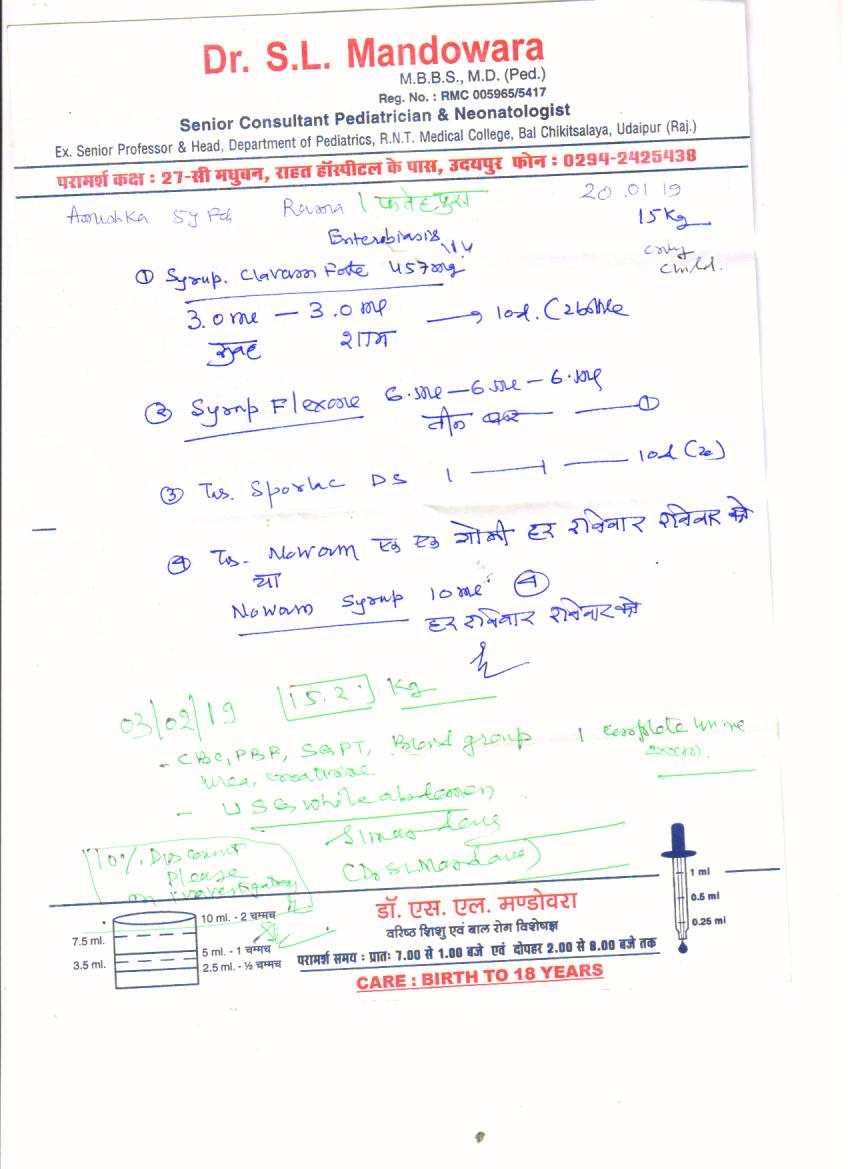 Dr. S.L. Mandowara
M.B.B.S., M.D. (Ped.)
Reg. No. : RMC 005965/5417
Senior Consultant Pediatrician & Neonatologist
Ex. Senior Professor & Head, Department of Pediatrics, R.N.T. Medical College, Bal Chikitsalaya, Udaipur (Raj.)
परामर्श कक्ष : 27-सी मधुबन, राहत हॉस्पीटल के पास, उदयपुर फोन : 0294-2425438
20.01.19
Anushka 5y
15Kg
Enterobiasis
only
child.
① Syrup. Clavam Forte 457mg
3.0 ml — 3.0 ml → 10d.
सुबह शाम
② Syrup Flexone 6.ml — 6.ml — 6.ml
तीन ①
③ Sporlac DS 1 — 1 — 10d
④ एक एक गोली हर रविवार रविवार को
या
Syrup 10ml ④
हर रविवार रविवार को
03/02/19 15.2 Kg
- CBC, PBF, SGPT, Blood group complete urine
urea, creatinine exam.
- USG whole abdomen
10% Discount
Please
on investigation
10 ml. - 2 चम्मच
7.5 ml.
5 ml - 1 चम्मच
3.5 ml.
2.5 ml. - ½ चम्मच
डॉ. एस. एल. मण्डोवरा
वरिष्ठ शिशु एवं बाल रोग विशेषज्ञ
परामर्श समय : प्रातः 7.00 से 1.00 बजे एवं दोपहर 2.00 से 8.00 बजे तक
CARE : BIRTH TO 18 YEARS
1 ml
0.5 ml
0.25 ml